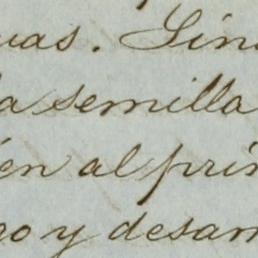 uas. Sin
la semilla
én al prin
o y desar